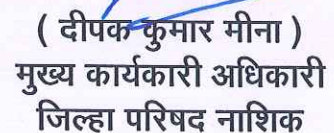 ( दीपक कुमार मीना )
मुख्य कार्यकारी अधिकारी
जिल्हा परिषद नाशिक